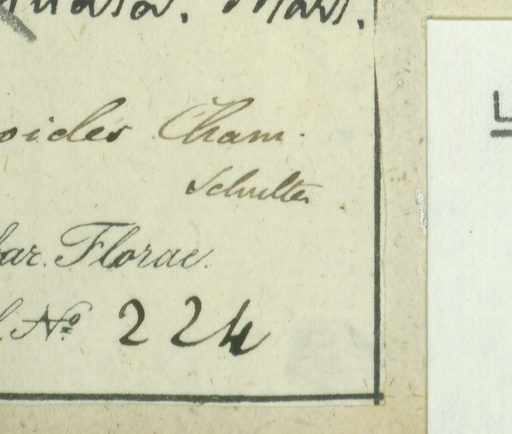 Mart.
oides Cham.
Schultes
ar. Florae.
. No 224
L